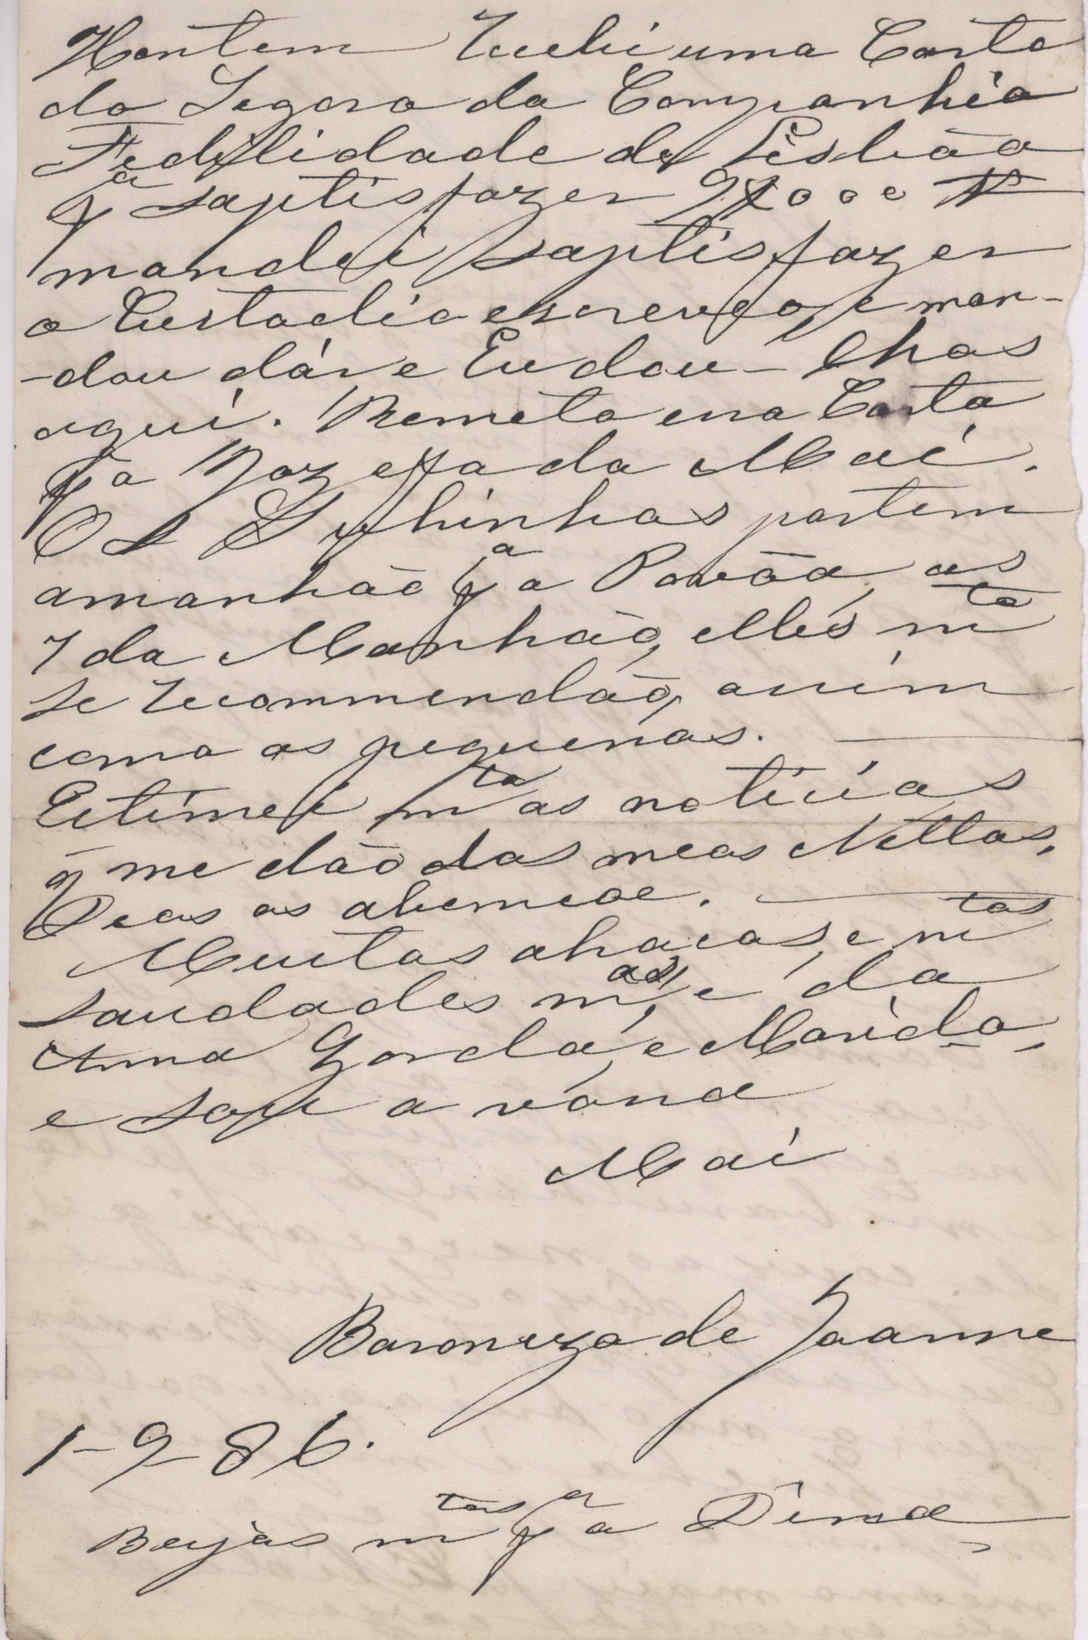 Hontem Recebi uma Carta
do Segoro da Companhia
Fedilidade de Lisbôa
pª saptisfazer 9$000
mandei saptisfazer
o Custodio escreveo, e man-
-dou dár, e Eu dou-lhos
aqui. Remeto essa Carta
pª da Mai.
Os partem
amanhão pª a Povôa, as
7 da Manhão, elles mto
se recommendão, assim
como os piquenos.
Estimei mto as noticias
q̃ me dão das meas Nettas,
Deos as abençoe.
Muitas abraços, e mtas
saudades mas, e da
Anna Gorda, e Maria,
e sou a vossa
Mai
Baroneza de Joanne
1-9-86.
Beijos mtos pª a Dina